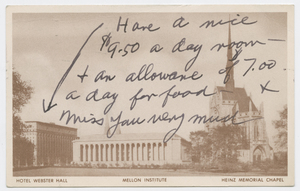 Have a nice
$9.50 a day room —
+ an allowance of 7.00
a day for food + x
Miss you very much
HOTEL WEBSTER HALL
MELLON INSTITUTE
HEINZ MEMORIAL CHAPEL